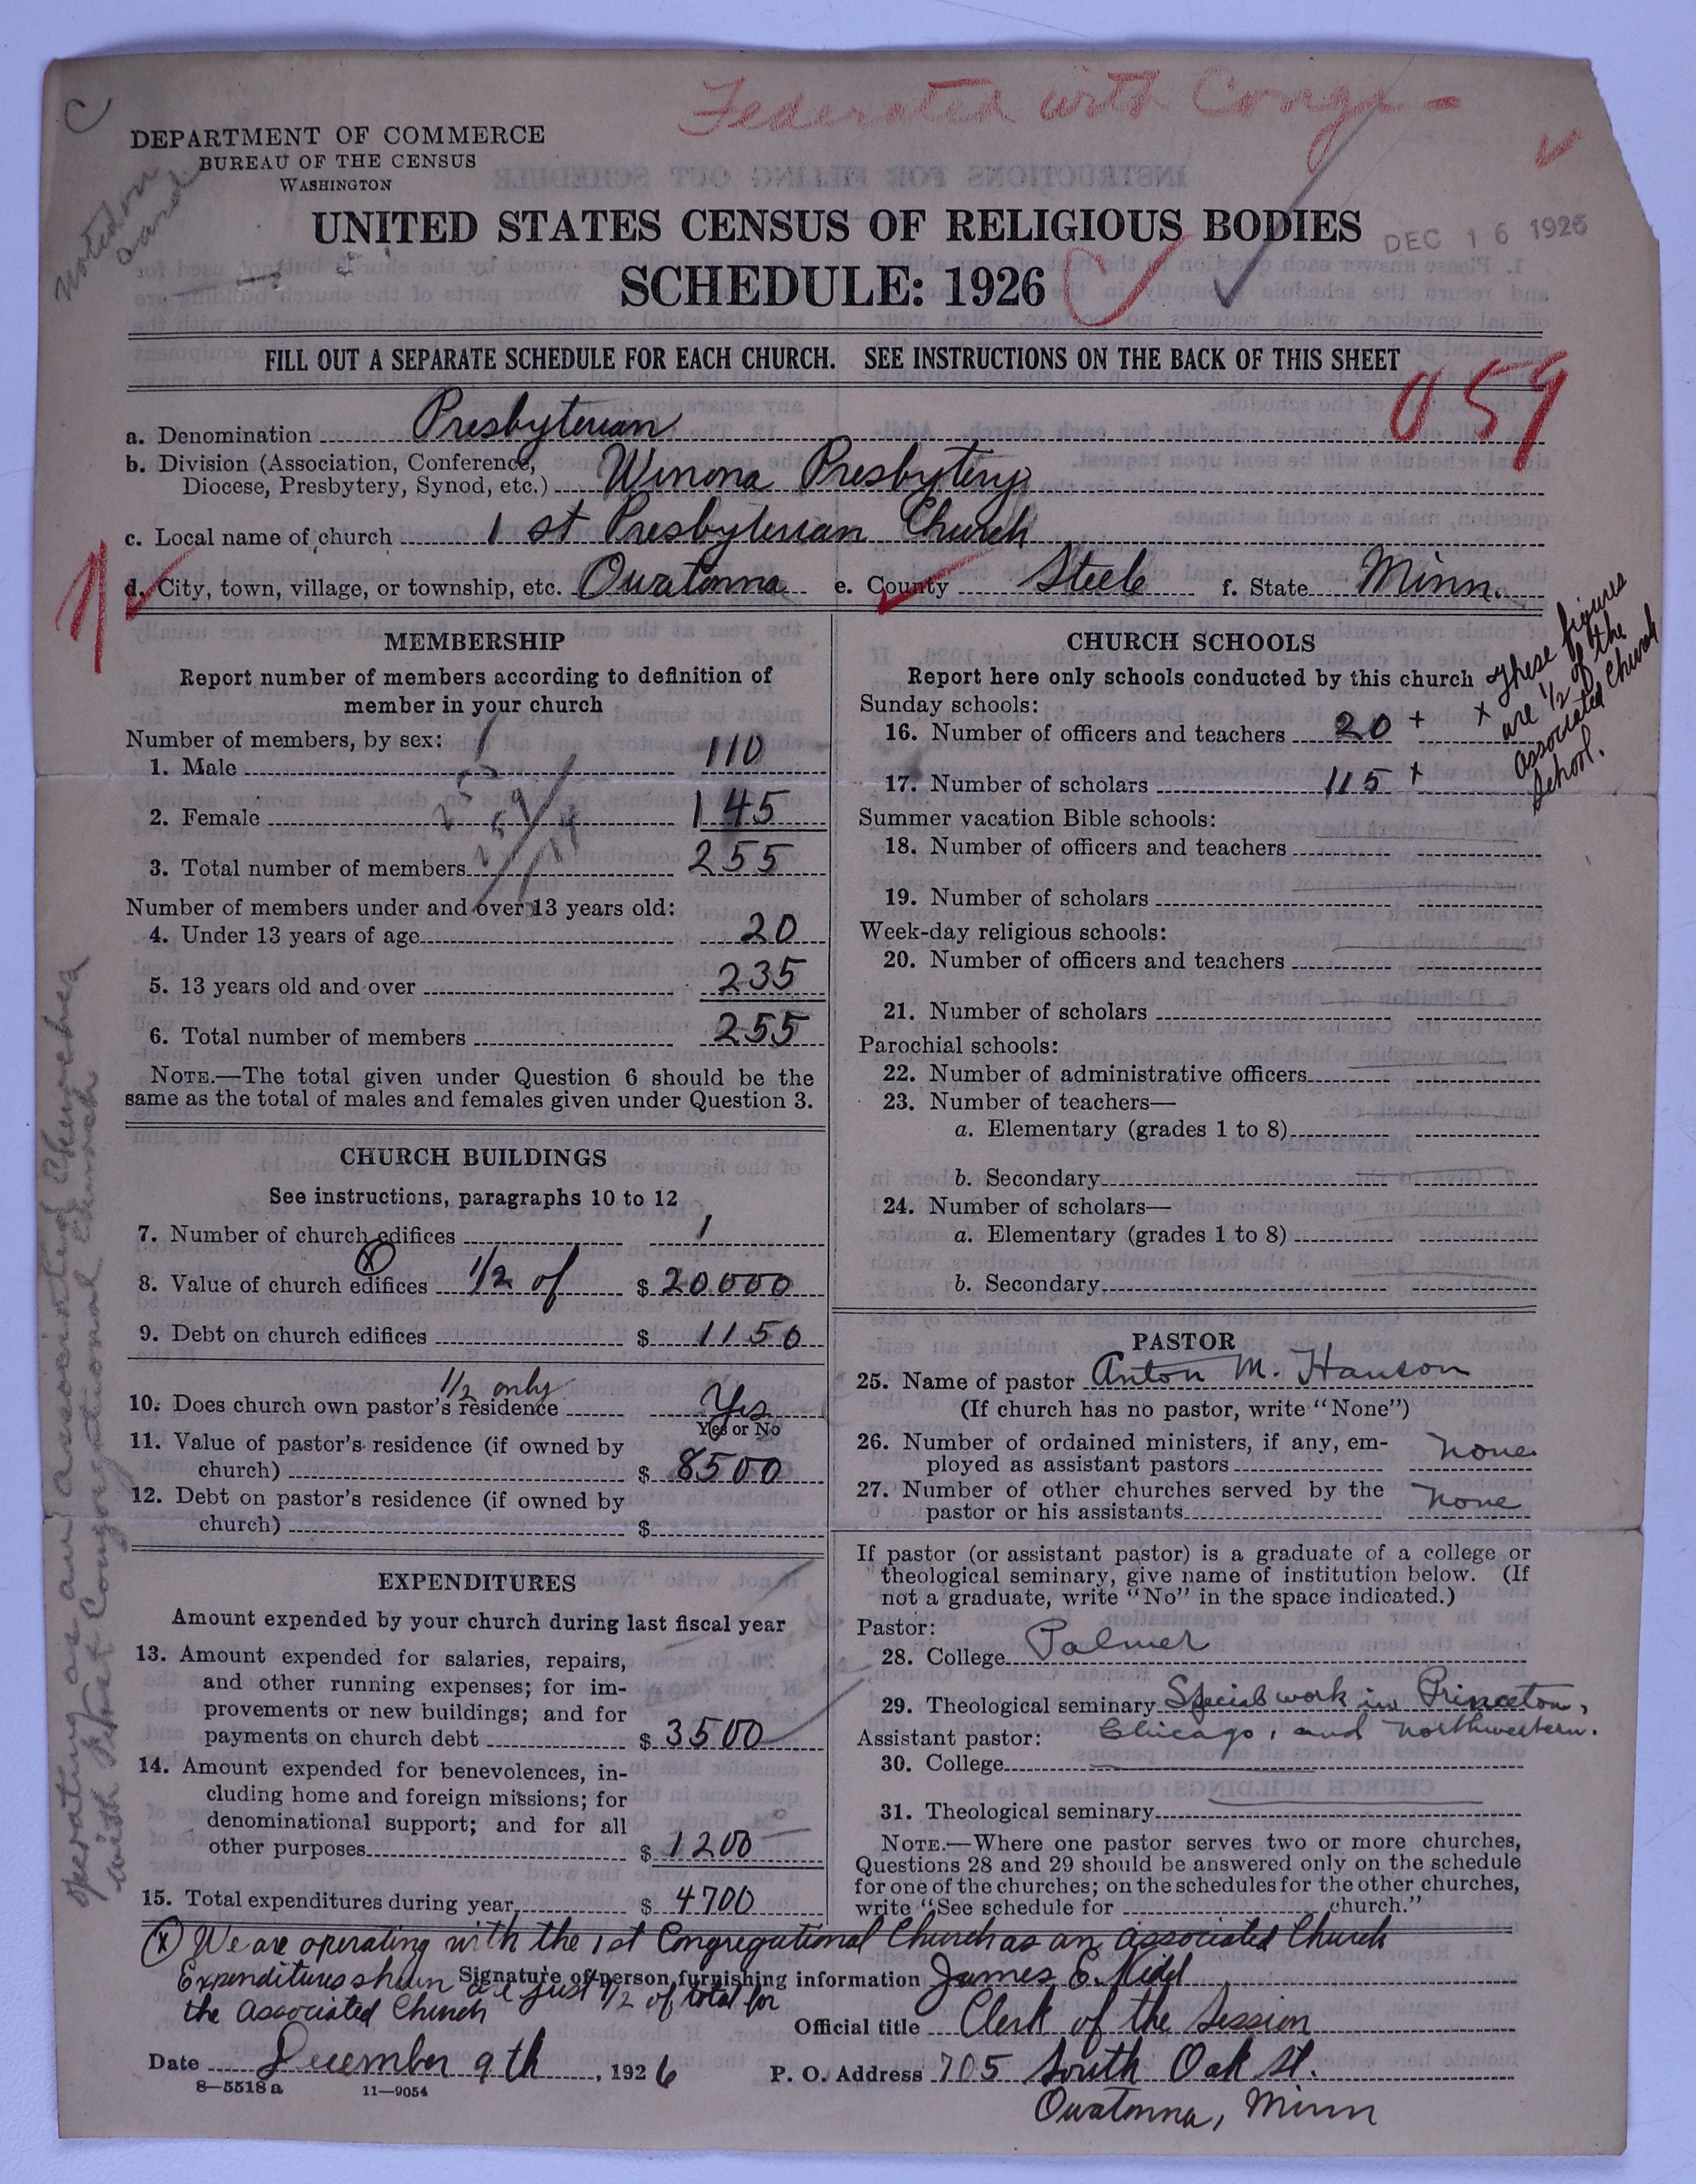 Federated with Cong-
C
DEPARTMENT OF COMMERCE
BUREAU OF THE CENSUS
WASHINGTON
Noted on
card
UNITED STATES CENSUS OF RELIGIOUS BODIES
DEC 16 1926
SCHEDULE: 1926
FILL OUT A SEPARATE SCHEDULE FOR EACH CHURCH. SEE INSTRUCTIONS ON THE BACK OF THIS SHEET
059
a. Denomination Presbyterian
b. Division (Association, Conference,
Diocese, Presbytery, Synod, etc.) Winona Presbytery
c. Local name of church 1st Presbyterian Church
d. City, town, village, or township, etc. Owatonna e. County Steele f. State Minn.
MEMBERSHIP
Report number of members according to definition of
member in your church
Number of members, by sex:
1. Male 110
2. Female 145
3. Total number of members 255
Number of members under and over 13 years old:
4. Under 13 years of age 20
5. 13 years old and over 235
6. Total number of members 255
NOTE.—The total given under Question 6 should be the
same as the total of males and females given under Question 3.
CHURCH BUILDINGS
See instructions, paragraphs 10 to 12
7. Number of church edifices 1
(x)
8. Value of church edifices 1/2 of $ 20000
9. Debt on church edifices $ 1150
1/2 only
10. Does church own pastor's residence Yes
Yes or No
11. Value of pastor's residence (if owned by
church) $ 8500
12. Debt on pastor's residence (if owned by
church) $
EXPENDITURES
Amount expended by your church during last fiscal year
13. Amount expended for salaries, repairs,
and other running expenses; for im-
provements or new buildings; and for
payments on church debt $ 3500
14. Amount expended for benevolences, in-
cluding home and foreign missions; for
denominational support; and for all
other purposes $ 1200
15. Total expenditures during year $ 4700
CHURCH SCHOOLS
Report here only schools conducted by this church
x These figures
are 1/2 of the
Associated Church
School.
Sunday schools:
16. Number of officers and teachers 20 +
17. Number of scholars 115 x
Summer vacation Bible schools:
18. Number of officers and teachers
19. Number of scholars
Week-day religious schools:
20. Number of officers and teachers
21. Number of scholars
Parochial schools:
22. Number of administrative officers
23. Number of teachers—
a. Elementary (grades 1 to 8)
b. Secondary
24. Number of scholars—
a. Elementary (grades 1 to 8)
b. Secondary
PASTOR
25. Name of pastor Anton M. Hanson
(If church has no pastor, write "None")
26. Number of ordained ministers, if any, em-
ployed as assistant pastors none
27. Number of other churches served by the
pastor or his assistants none
If pastor (or assistant pastor) is a graduate of a college or
theological seminary, give name of institution below. (If
not a graduate, write "No" in the space indicated.)
Pastor:
28. College Palmer
29. Theological seminary Special work in Princeton,
Chicago, and Northwestern.
Assistant pastor:
30. College
31. Theological seminary
NOTE.—Where one pastor serves two or more churches,
Questions 28 and 29 should be answered only on the schedule
for one of the churches; on the schedules for the other churches,
write "See schedule for church."
operating as an associated Churches
with First Congregational Church
(x) We are operating with the 1st Congregational Church as an associated Church
Expenditures shown are just 1/2 of total for
the Associated Church
Signature of person furnishing information James E.
Official title Clerk of the Session
Date December 9th, 1926 P. O. Address 705 South Oak St.
Owatonna, Minn
8—5518a 11—9054